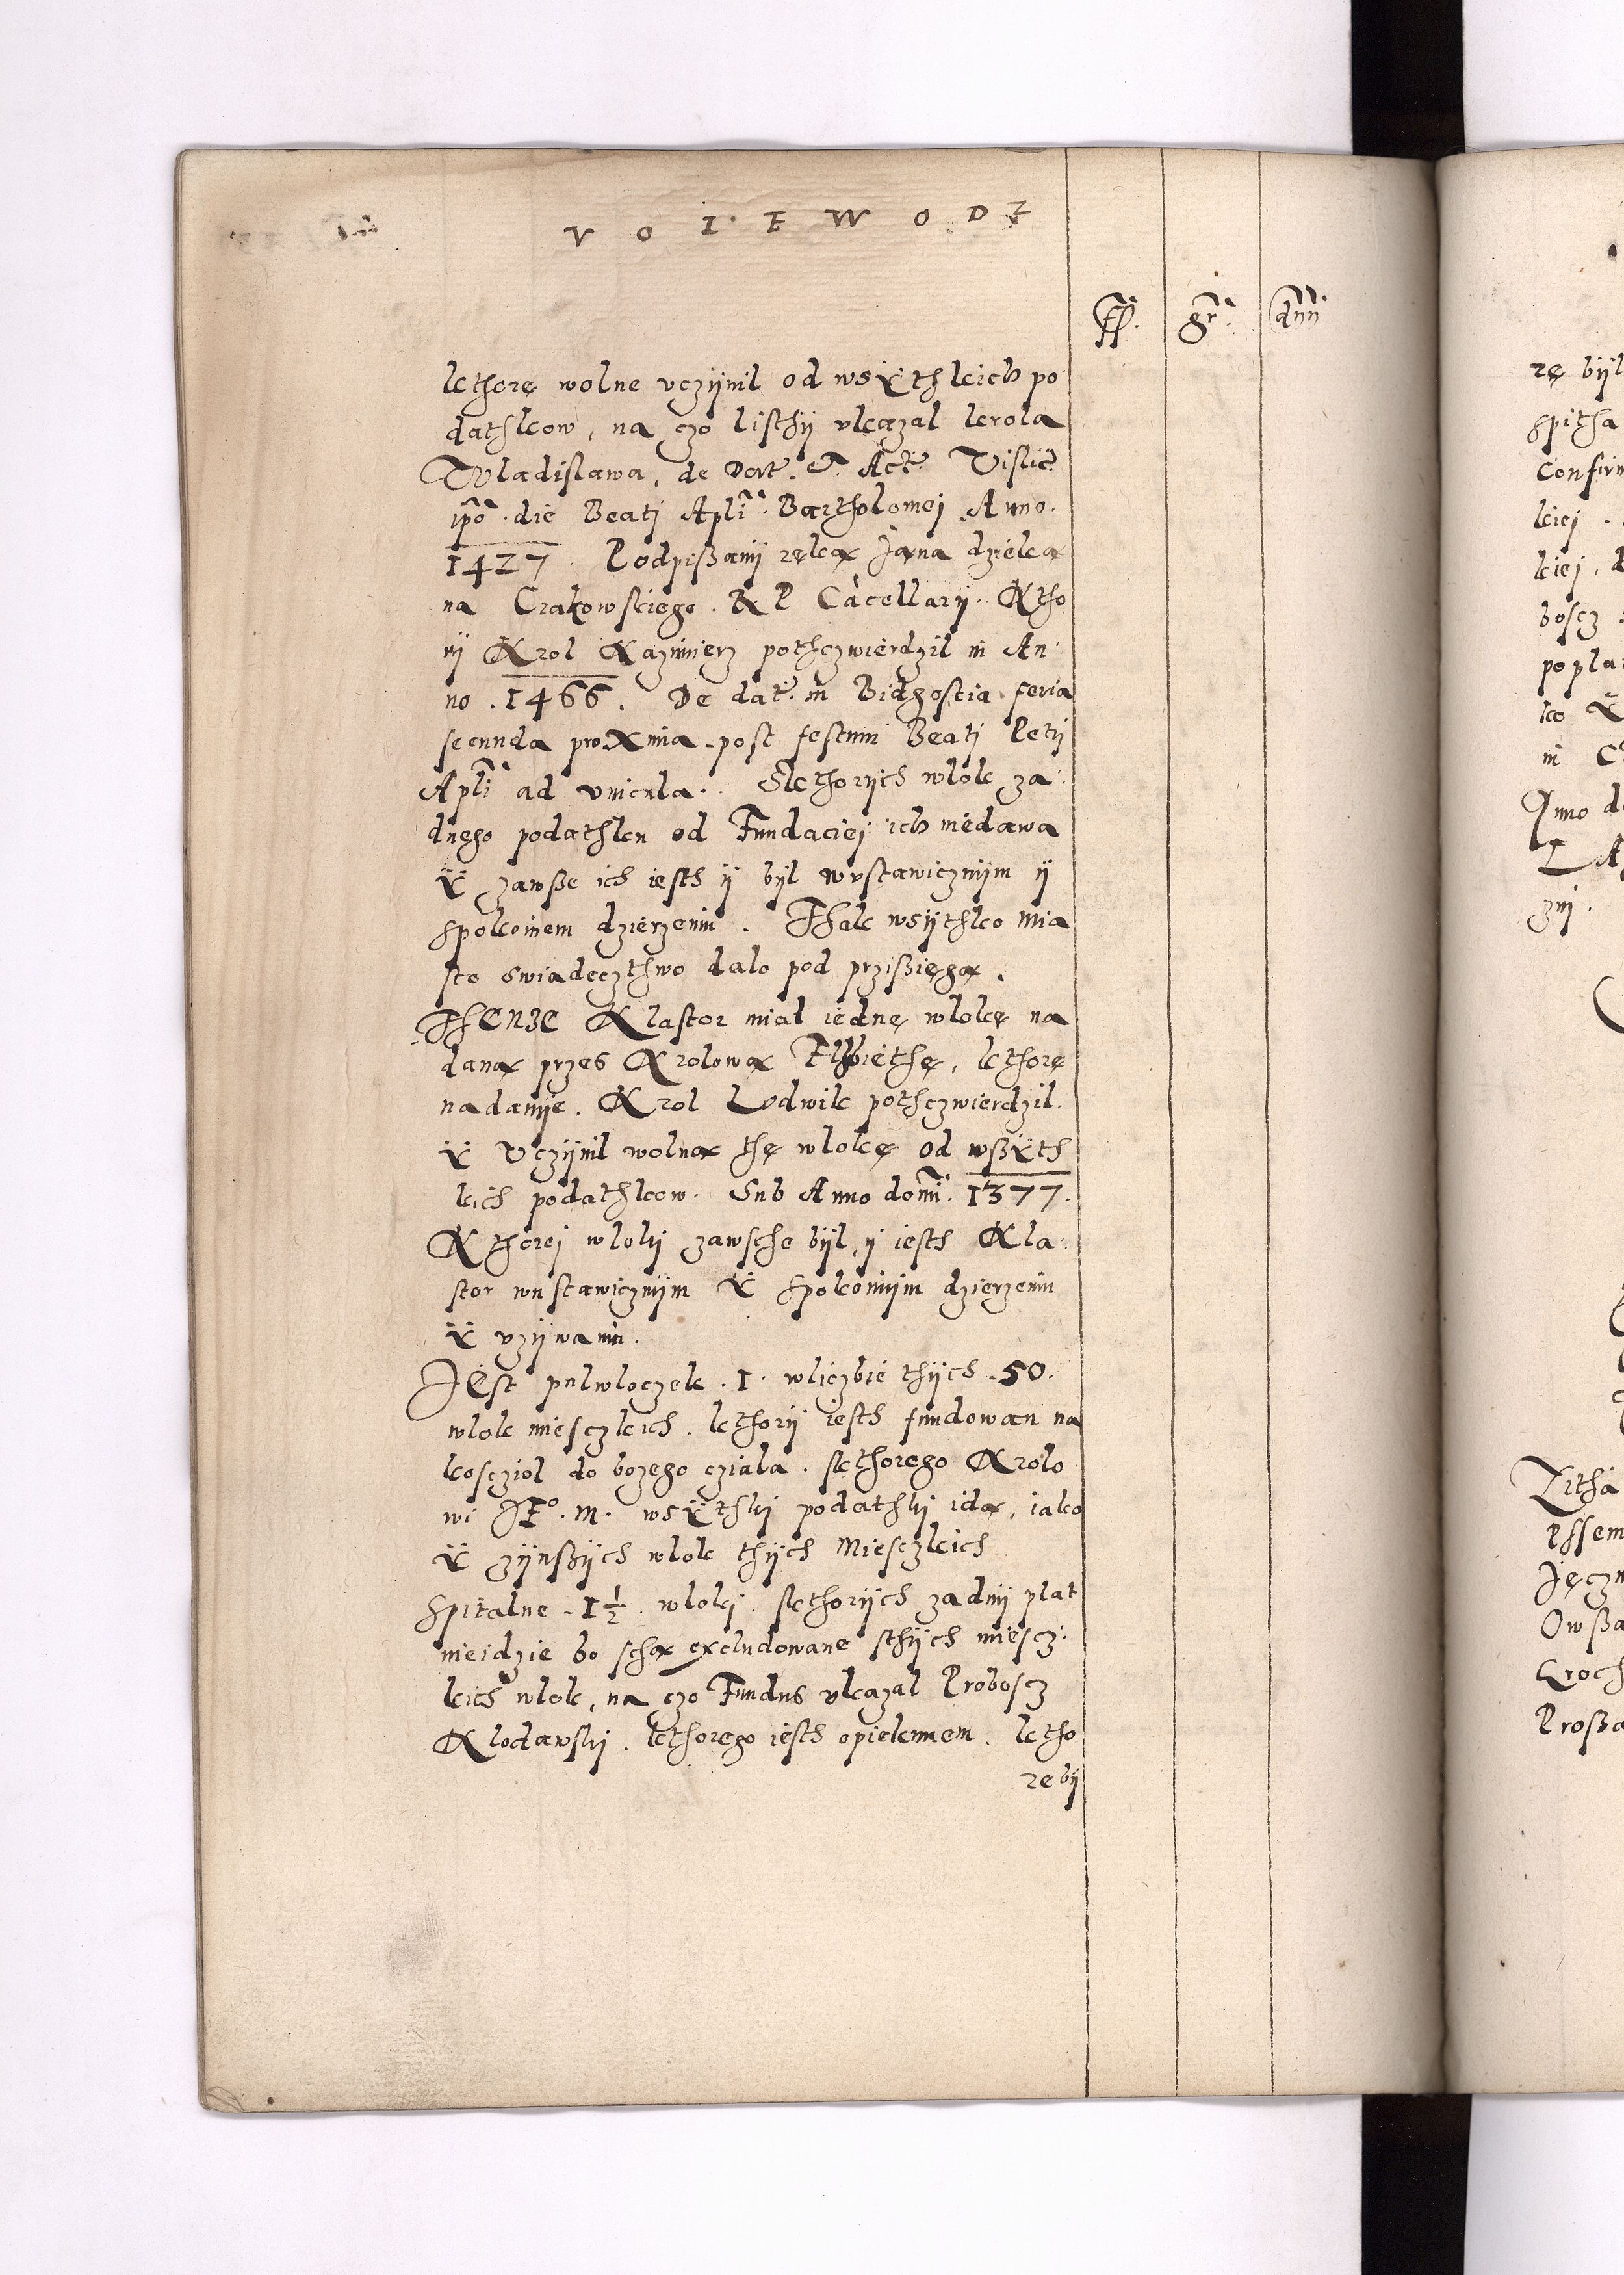 VOIEWODZ
ff. gr. dnn
kthorę wolne vczÿnil od wsÿthkich po
dathkow, na czo listhÿ vkazal krola
Wladislawa, de Dat. et Act. Vislic.
ipo. die Beatj Apli. Bartholomej Anno.
1427. Podpißanÿ ręką Jana dzieką
na Crakowskiego. R P Cacellarÿ. Ktho
rÿ Krol Kazimierz pothczwierdzil in An
no. 1466. De dat. in Bidgostia feria
secunda proXima post festum Beatj Petrj
Apli ad vincula. Skthorÿch wlok ża
dnego podathku od Fundaciej ich niedawa
Ÿ zawße ich iesth ÿ bÿl wvstawicznÿm ÿ
spokoinem dzierzeniu. Thak wsÿthko mia
sto swiadecztwo dalo pod przißięgą.
THENZE Klastor mial iednę wlokę na
daną przes Krolową Elßbiethę, kthorę
nadanie. Krol Lodwik pothczwierdzil.
Ÿ Vczÿnil wolną thę wlokę od wßÿth
kich podathkow. Sub Anno domi. 1377.
Kthorej wloki zawsche bÿl, ÿ iesth Kla
stor wustawicznÿm Ÿ spokoinÿm dzierzeniu
Ÿ vzÿwaniu.
JEst pulwloczek. 1. wliczbie thÿch. 50.
wlok miesczkich. kthorÿ iesth fundowan na
kosczioł do bozego cziala. skthorego Krolo
wi JE°. m. wsÿthki podathki idą, iako
Ÿ zÿnßÿch wlok thÿch Miesczkich
Spitalne. 1½. wlokj. skthorÿch zadnÿ plat
nieidzie bo schą excludowane sthÿch miescz
kich wlok, na czo Fundus vkazal Proboscz
Klodawski. kthorego iesth opiekunem. ktho
re bÿ
rę bÿl
spitha
Confirm
kiej.
kiej, d
boscz.
poplat
ko Ÿ
in C
Anno d
znj.
Zitha
Pssem
Jęczm
Owßa
Groch
Proßa